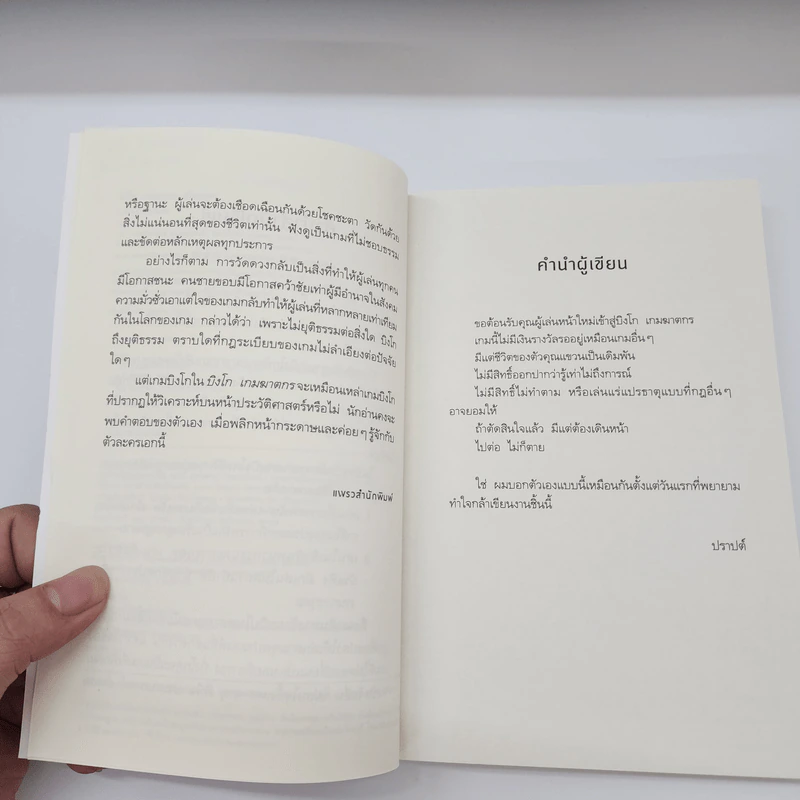 หรือฐานะ ผู้เล่นจะต้องเชือดเฉือนกันด้วยโชคชะตา วัดกันด้วย
สิ่งไม่แน่นอนที่สุดของชีวิตเท่านั้น ฟังดูเป็นเกมที่ไม่ชอบธรรม
และขัดต่อหลักเหตุผลทุกประการ
อย่างไรก็ตาม การวัดดวงกลับเป็นสิ่งที่ทำให้ผู้เล่นทุกคน
มีโอกาสชนะ คนชายขอบมีโอกาสคว้าชัยเท่าผู้มีอำนาจในสังคม
ความมั่วซั่วเอาแต่ใจของเกมกลับทำให้ผู้เล่นที่หลากหลายเท่าเทียม
กันในโลกของเกม กล่าวได้ว่า เพราะไม่ยุติธรรมต่อสิ่งใด บิงโก
ถึงยุติธรรม ตราบใดที่กฎระเบียบของเกมไม่ลำเอียงต่อปัจจัย
ใดๆ
แต่เกมบิงโกใน บิงโก เกมฆาตกร จะเหมือนเหล่าเกมบิงโก
ที่ปรากฏให้วิเคราะห์บนหน้าประวัติศาสตร์หรือไม่ นักอ่านคงจะ
พบคำตอบของตัวเอง เมื่อพลิกหน้ากระดาษและค่อยๆ รู้จักกับ
ตัวละครเอกนี้
แพรวสำนักพิมพ์
คำนำผู้เขียน
ขอต้อนรับคุณผู้เล่นหน้าใหม่เข้าสู่บิงโก เกมฆาตกร
เกมนี้ไม่มีเงินรางวัลรออยู่เหมือนเกมอื่นๆ
มีแต่ชีวิตของตัวคุณแขวนเป็นเดิมพัน
ไม่มีสิทธิ์ออกปากว่ารู้เท่าไม่ถึงการณ์
ไม่มีสิทธิ์ไม่ทำตาม หรือเล่นแร่แปรธาตุแบบที่กฎอื่นๆ
อาจยอมให้
ถ้าตัดสินใจแล้ว มีแต่ต้องเดินหน้า
ไปต่อ ไม่ก็ตาย
ใช่ ผมบอกตัวเองแบบนี้เหมือนกันตั้งแต่วันแรกที่พยายาม
ทำใจกล้าเขียนงานชิ้นนี้
ปราปต์